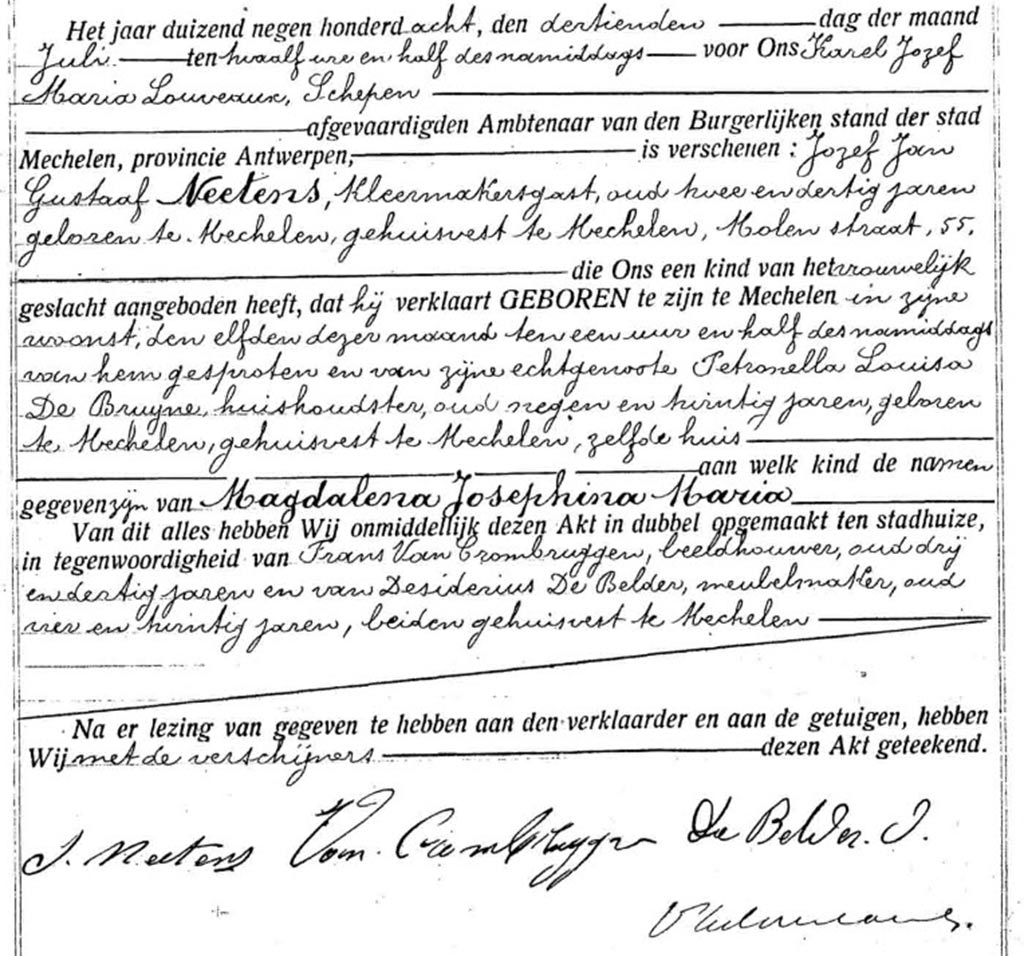 Het jaar duizend negen honderd acht, den dertienden dag der maand
Juli ten twaalf ure en half des namiddags voor Ons Karel Jozef
Maria Louveaux, Schepen
afgevaardigden Ambtenaar van den Burgerlijken stand der stad
Mechelen, provincie Antwerpen, is verschenen : Jozef Jan
Gustaaf Neetens, Kleermakersgast, oud twee en dertig jaren
geboren te Mechelen, gehuisvest te Mechelen, Molen straat, 55.
die Ons een kind van het vrouwelijk
geslacht aangeboden heeft, dat hij verklaart GEBOREN te zijn te Mechelen in zijne
woonst, den elfden dezer maand ten een uur en half des namiddags
van hem gesproten en van zijne echtgenoote Petronella Louisa
De Bruyne, huishoudster, oud negen en twintig jaren, geboren
te Mechelen, gehuisvest te Mechelen, zelfde huis
aan welk kind de namen
gegeven zijn van Magdalena Josephina Maria
Van dit alles hebben Wij onmiddellijk dezen Akt in dubbel opgemaakt ten stadhuize,
in tegenwoordigheid van Frans Van Crombruggen, beeldhouwer, oud drij
en dertig jaren en van Desiderius De Belder, meubelmaker, oud
vier en twintig jaren, beiden gehuisvest te Mechelen
Na er lezing van gegeven te hebben aan den verklaarder en aan de getuigen, hebben
Wij met de verschijners dezen Akt geteekend.
J. Neetens Van Crombruggen De Belder. D.